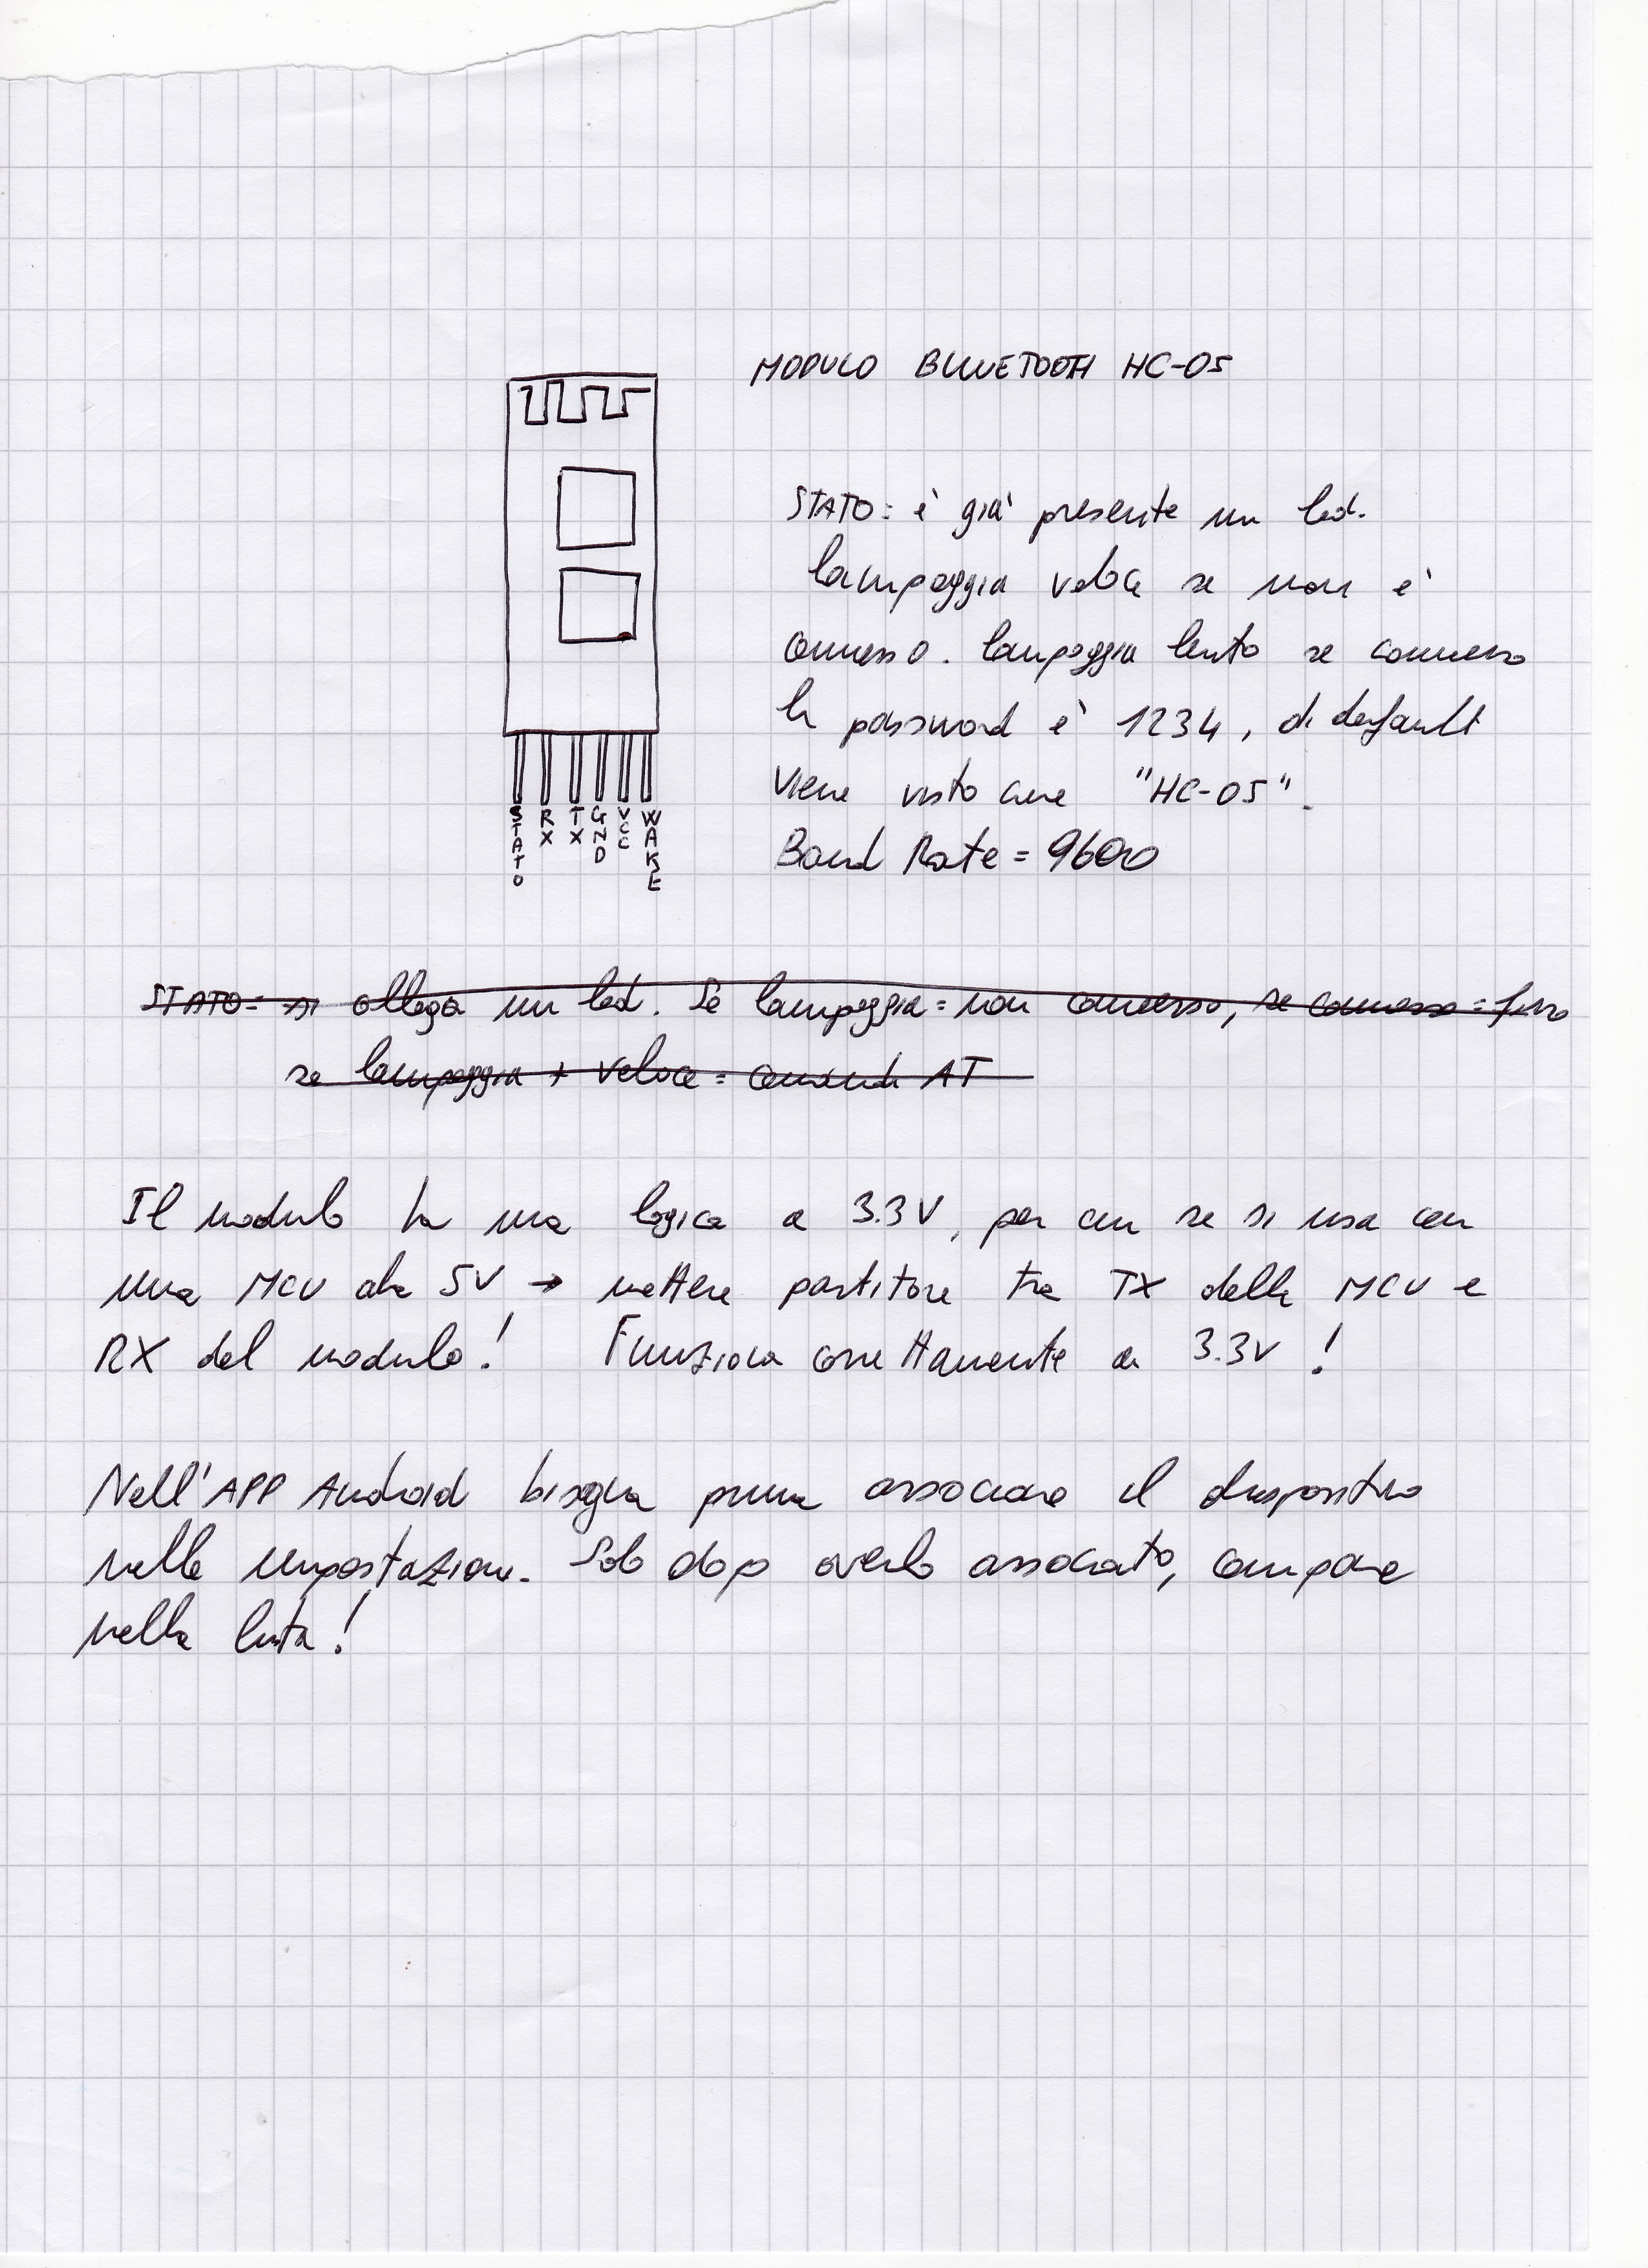 MODULO BLUETOOTH HC-05
STATO: è già presente un led.
lampeggia veloce se non è
connesso. lampeggia lento se connesso
la password è 1234, di default
viene visto come "HC-05".
Baud Rate = 9600
STATO RX TX GND VCC WAKE
STATO: si collega un led. Se lampeggia = non connesso, se connesso = fisso
se lampeggia + veloce = comandi AT
Il modulo ha una logica a 3.3V, per cui se si usa con
una MCU da 5V → mettere partitore tra TX della MCU e
RX del modulo! Funziona correttamente a 3.3V!
Nell'APP Android bisogna prima associare il dispositivo
nelle impostazioni. Solo dopo averlo associato, compare
nella lista!